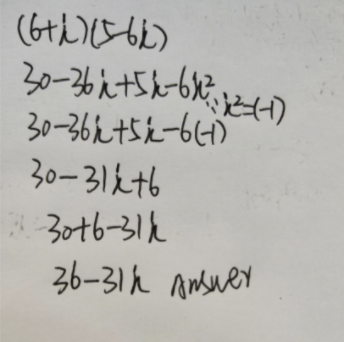 (6+i)(5-6i)
30-36i+5i-6i² ∵ i²=(-1)
30-36i+5i-6(-1)
30-31i+6
30+6-31i
36-31i Answer